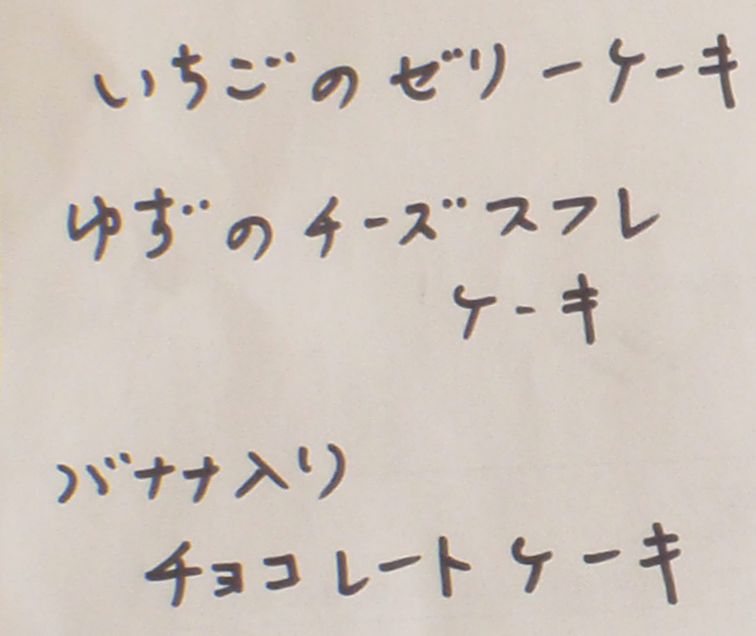 いちごのゼリーケーキ
ゆずのチーズスフレ
ケーキ
バナナ入り
チョコレートケーキ